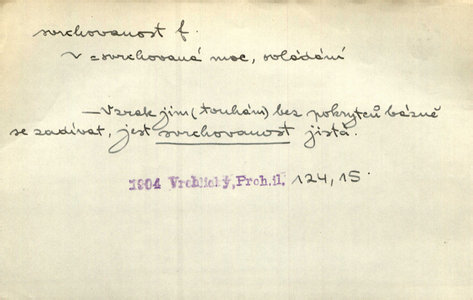 svrchovanost f.
v = svrchovaná moc, ovládání
— V zrak jim (touhám) bez pokrytců bázně
se zadívat, jest svrchovanost jistá.
1904 Vrchlický, Proh.il. 124, 15.